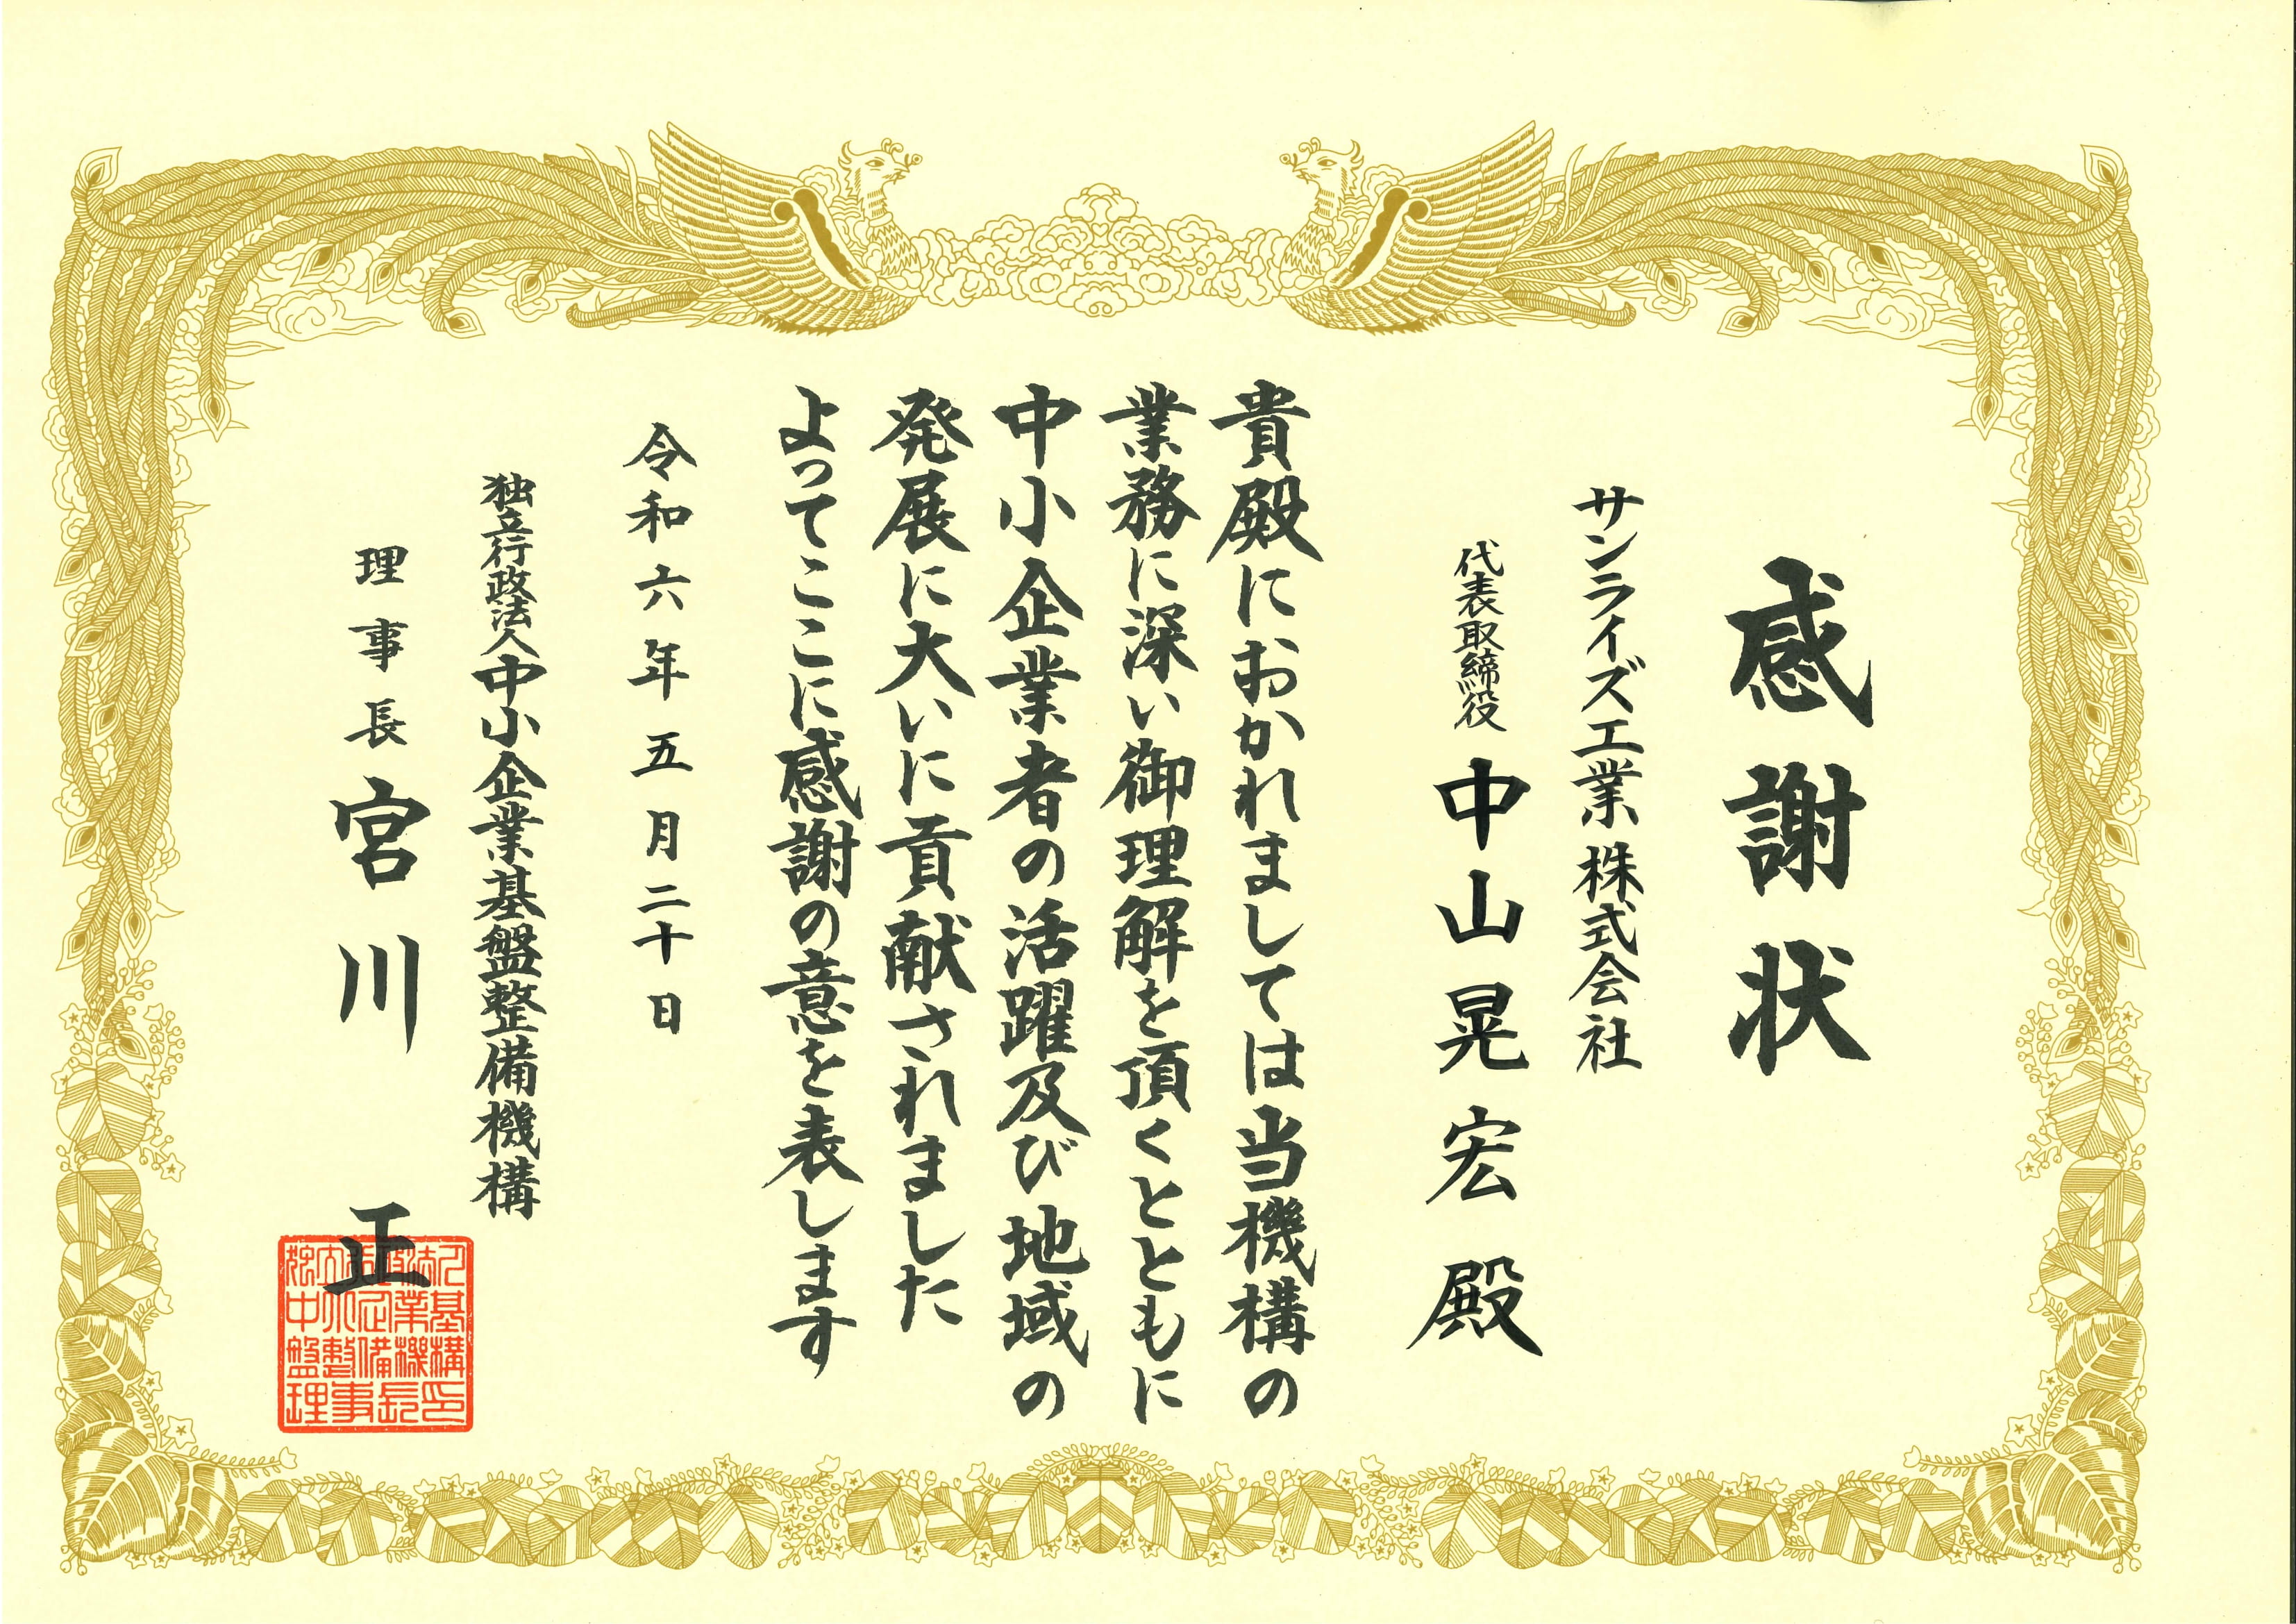 感謝状
サンライズ工業株式会社
代表取締役 中山晃宏殿
貴殿におかれましては当機構の
業務に深い御理解を頂くとともに
中小企業者の活躍及び地域の
発展に大いに貢献されました
よってここに感謝の意を表します
令和六年五月二十日
独立行政法人中小企業基盤整備機構
理事長 宮川正